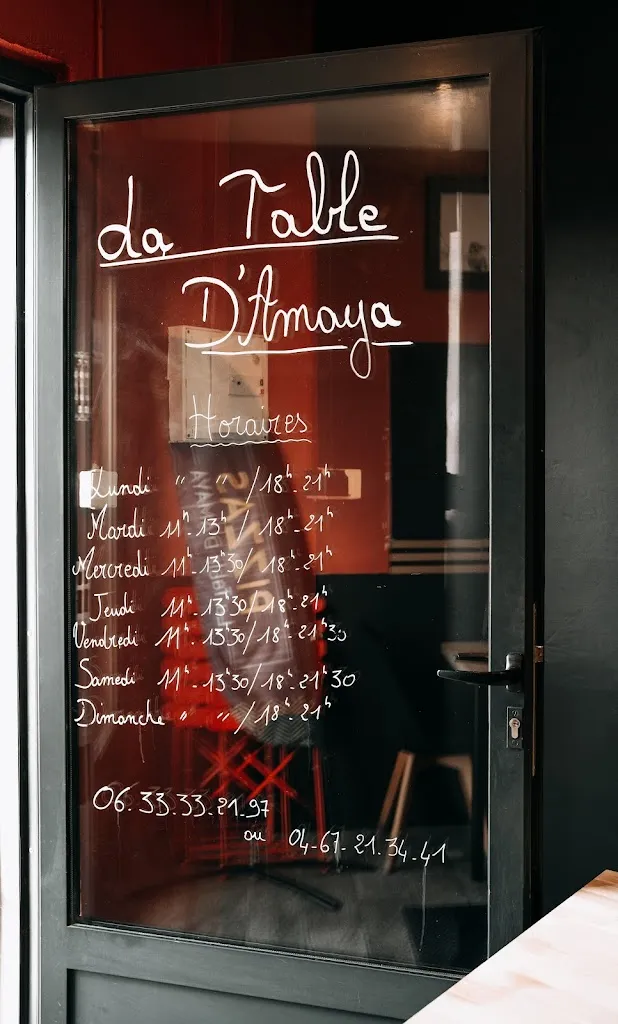 La Table
D'Amaya
Horaires
Lundi " " / 18h - 21h
Mardi 11h - 13h / 18h - 21h
Mercredi 11h - 13h30 / 18h - 21h
Jeudi 11h - 13h30 / 18h - 21h
Vendredi 11h - 13h30 / 18h - 21h30
Samedi 11h - 13h30 / 18h - 21h30
Dimanche " " / 18h - 21h
06.33.33.21.97
ou 04-67-21.34.41
PIZZAS